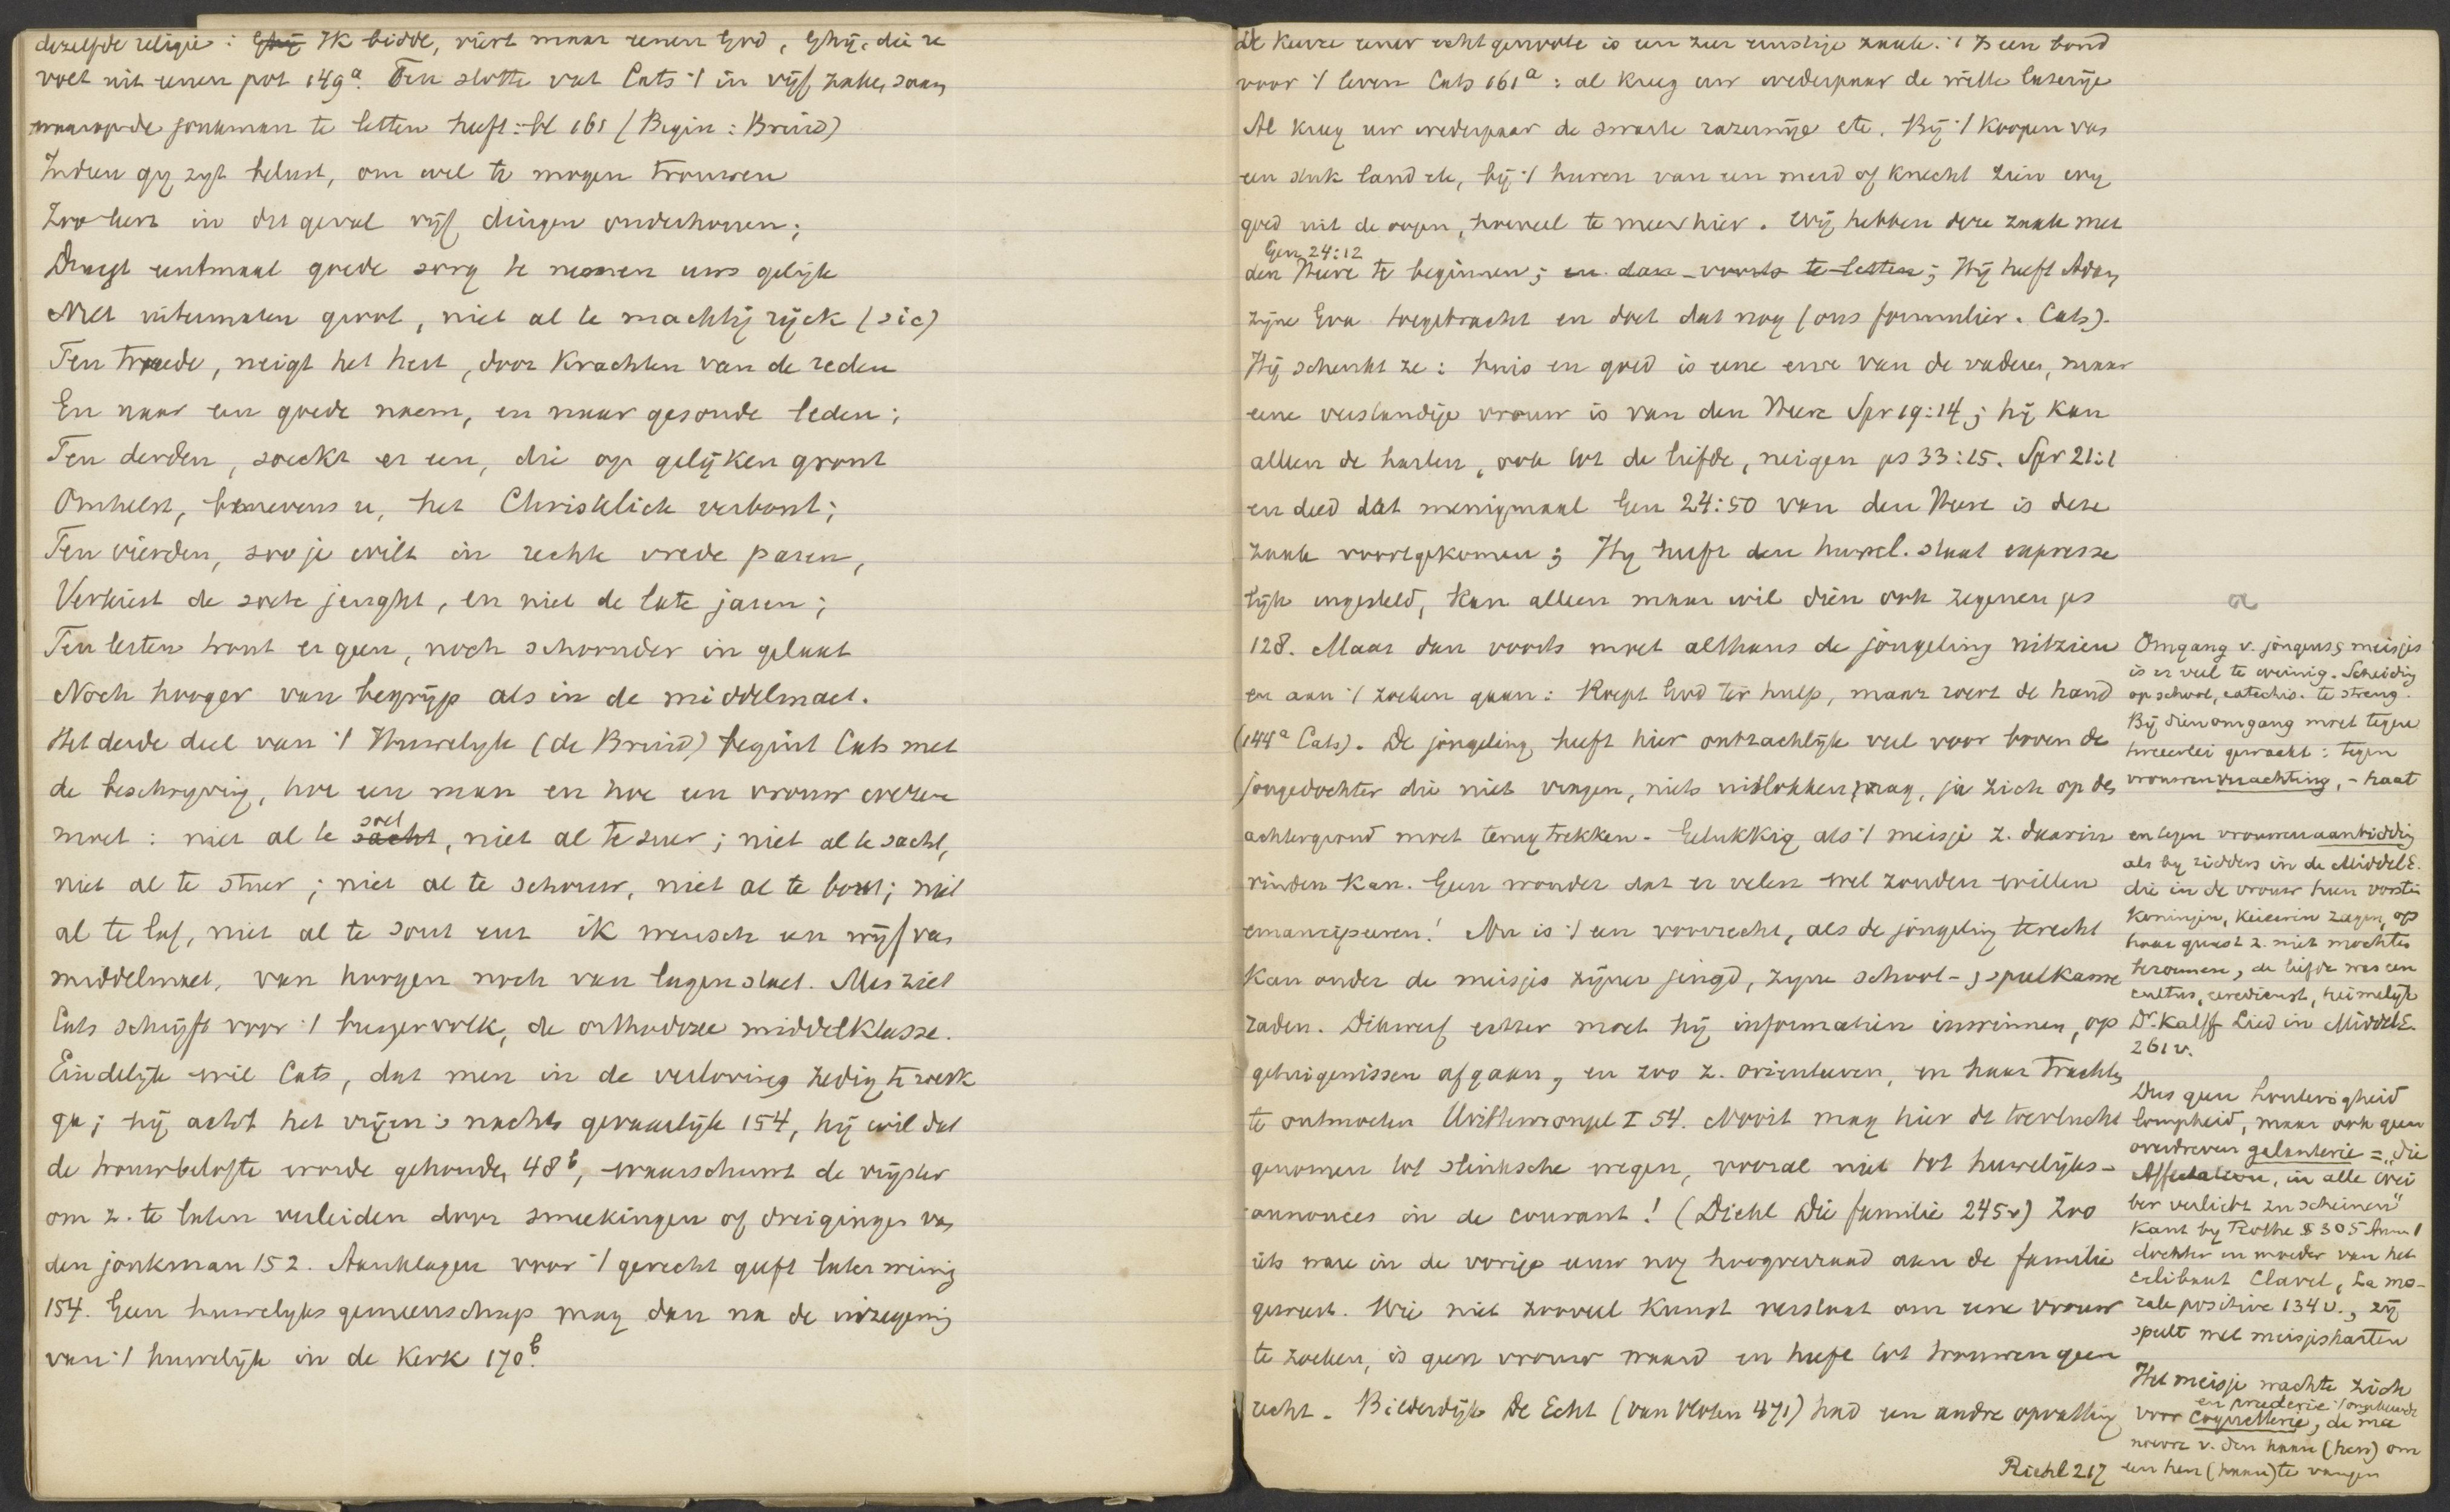 dezelfde religie: Ghij Ik bidde, viert maar eenen God, Ghij, die u
voet uit eenen pot 149a. Ten slotte vat Cats 't in vijf zaken saam
waarop de jonkman te letten heeft: bl 161 (Begin: Bruid)
Indien gy zyt belust, om wel te mogen trouwen
Zoo leert in dit geval vijf dingen onderhouwen;
Draegt eentmaal goede sorg te nemen uws gelijk
Niet uitermaten groot, niet al te machtig ryck (sic)
Ten tweede, neigt het hert, door krachten van de reden
En naar een goede naem, en naar gesonde leden;
Ten derden, soeckt er een, die op gelijken gront
Omhelst, benevens u, het Christelick verbont;
Ten vierden, soo je wilt in rechte vrede paren,
Verkiest de soete jeught, en niet de late jaren;
Ten lesten trout er geen, noch schoonder in gelaat
Noch hooger van begrijp als in de middelmaet.
Het derde deel van 't Huwelyk (de Bruid) begint Cats met
de beschryving, hoe een man en hoe een vrouw wezen
moet: niet al te sacht soet, niet al te suer; niet al te sacht,
niet al te stuer; niet al te schouw, niet al te bout; niet
al te laf, niet al te sout enz ik wensch een wijf van
middelmaet, van hoogen noch van lagen staet. Men ziet
Cats schrijft voor 't burgervolk, de orthodoxe middelklasse.
Eindelyk wil Cats, dat men in de verloving zedig te werk
ga; hij acht het vrijen 's nachts gevaarlyk 154, hij wil dat
de trouwbelofte worde gehouden 48b, waarschuwt de vrijster
om z. te laten verleiden door smeekingen of dreigingen van
den jonkman 152. Aanklagen voor 't gerecht geeft later weinig
154. Geen huwelyks gemeenschap mag dan na de inzegening
van 't huwelijk in de Kerk 170b.
De keuze eener echtgenoote is een zeer ernstige zaak. 't Is een band
voor 't leven Cats 161a: al kreeg uw wederpaar de witte lazerije
Al kreeg uw wederpaar de swarte razernije etc. Bij 't koopen van
een stuk land etc, bij 't huren van een meid of knecht zien wy
goed uit de oogen, hoeveel te meer hier. Wij hebben deze zaak met
Gen 24:12
den Heere te beginnen; en dan voorts te letten; Hij heeft Adam
zijne Eva toegebracht en doet dat nog (ons formulier. Cats).
Hij schenkt ze: huis en goed is eene erve van de vaderen, maar
eene verstandige vrouw is van den Heere Spr 19:14; hij kan
alleen de harten, ook tot de liefde, neigen ps 33:15. Spr 21:1
en deed dat menigmaal Gen 24:50 van den Heere is deze
zaak voortgekomen; Hy heeft den huwel. staat expresse
lijk ingesteld, kan alleen maar wil dien ook zegenen ps
128. Maar dan voorts moet althans de jongeling uitzien
en aan 't zoeken gaan: Roept God ter hulp, maar roert de hand
(144a Cats). De jongeling heeft hier ontzachlijk veel voor boven de
jongedochter die niet vragen, niets uitlokken mag, ja zich op den
achtergrond moet terug trekken. Gelukkig als 't meisje z. daarin
vinden kan. Geen wonder dat er velen wel zouden willen
emancipeeren! Nu is 't een voorrecht, als de jongeling terecht
kan onder de meisjes zijner jeugd, zyne school- & speelkame
raden. Dikwerf echter moet hij informatien inwinnen, op
getuigenissen afgaan, en zoo z. orienteeren, en haar trachten
te ontmoeten Wittewrongel I 54. Nooit mag hier de toevlucht
genomen tot slinksche wegen, vooral niet tot huwelijks-
annonces in de courant! (Riehl Die familie 245v) Zoo
iets ware in de vorige eeuw nog hoogverraad aan de familie
geweest. Wie niet zooveel kunst verstaat om eene vrouw
te zoeken, is geen vrouw waard en heeft tot trouwen geen
recht. Bilderdijk De Echt (van Vloten 471) had een andre opvatting
a
Omgang v. jongens & meisjes
is er veel te weinig. Scheiding
op school, catechis. te streng.
Bij dien omgang moet tegen
tweeërlei gewaakt: tegen
vrouwenverachting, - haat
en tegen vrouwenaanbidding
als by ridders in de MiddelE.
die in de vrouw hun vorstin
Koningin, Keizerin zagen, op
haar gunst z. niet mochten
beroemen, de liefde was een
cultus, eeredienst, heimelijk
Dr. Kalff Lied in MiddelE.
261v.
Dus geen
lompheid, maar ook geen
overdreven galanterie = "die
Affectation, in alle Wei
ber verliebt zu scheinen"
Kant by Rothe § 305 Anm 1
dochter en moeder van het
celibaat Clavel, La mo-
rale positive 134v., zij
speelt met meisjesharten
Het meisje wachte zich
en pruderie
voor Coquetterie, de ma
noeuvre v. den haan (hen) om
een hen (haan) te vangen
Riehl 217